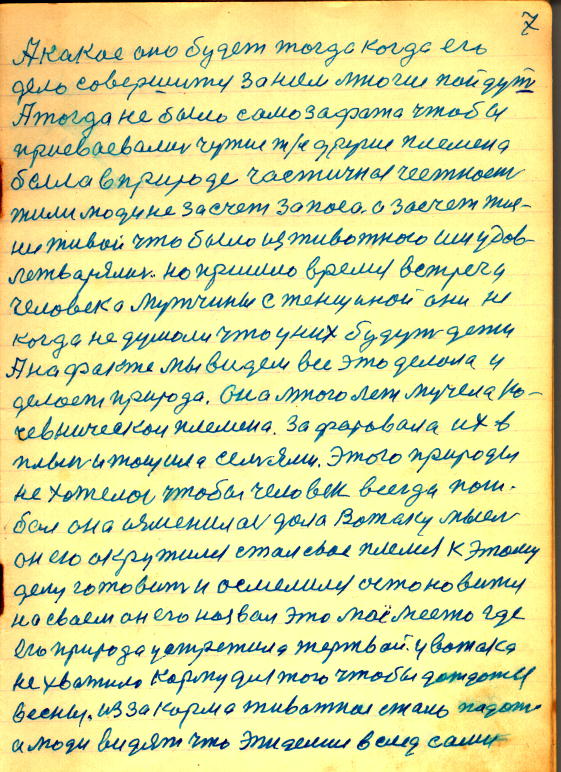 7
А какое оно будет тогда когда его
дело совершится за ним многие пойдут
А тогда не было само зафата чтобы
приеваевали чужие т/е другие племена
была в природе частичная честност
жили люди не засчет запоса. а засчет жи-
ни живой что было из животного им удов-
летварялис. но пришло время встречи
человека мужчины с женщиной они ни
когда не думали что у них будут дети
А на факте мы видем все это делала и
делает природа. Она много лет мучела ко-
чевнической племена. Зафатовала их в
плен и тощила семями. Этого природы
не хотелос чтобы человек всегда поги-
бал она изменилас дала Вотаку мысл
он его окружился стал свое племя к этому
делу готовит и осмелился остоновится
на сваем он его назвал это моё место где
его природа устретила жертвай. у вотака
не хватило корму для того чтобы дождатся
весны. из за корма животное стало падат
а люди видят что эпидемия вслед сами